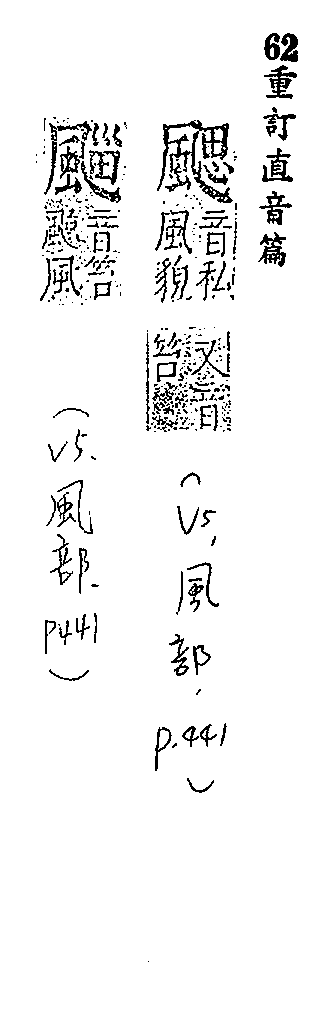 62重訂直音篇
颸
音私
風貌
又音
笞
(V5,風部,p.441)
音笞
颸風
(V5.風部.p441)